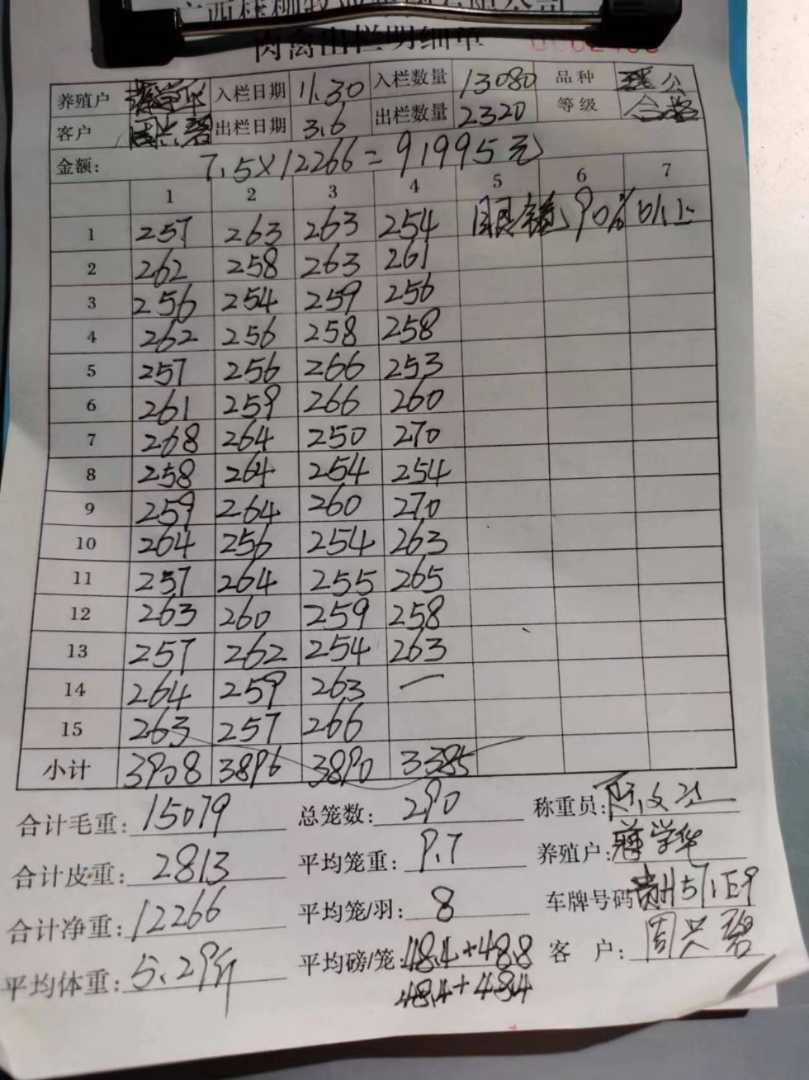 肉禽出栏明细单
养殖户 蒋学华 入栏日期 11.30 入栏数量 13080 品种
客户 周兴碧 出栏日期 3.6 出栏数量 2320 等级 合格
金额: 7.5×12266=91995元
1 2 3 4 5 6 7
1 257 263 263 254 90%以上
2 262 258 263 261
3 256 254 259 256
4 262 256 258 258
5 257 256 266 253
6 261 259 266 260
7 268 264 250 270
8 258 264 254 254
9 259 264 260 270
10 264 256 254 263
11 257 264 255 265
12 263 260 259 258
13 257 262 254 263
14 264 259 263 —
15 263 257 266
小计 3908 3896 3890 3385
合计毛重: 15079 总笼数: 290 称重员:
合计皮重: 2813 平均笼重: 9.7 养殖户: 蒋学华
合计净重: 12266 平均笼/羽: 8 车牌号码
平均体重: 5.29斤 平均磅/笼: 48.4+48.8 客 户: 周兴碧
48.4+48.4